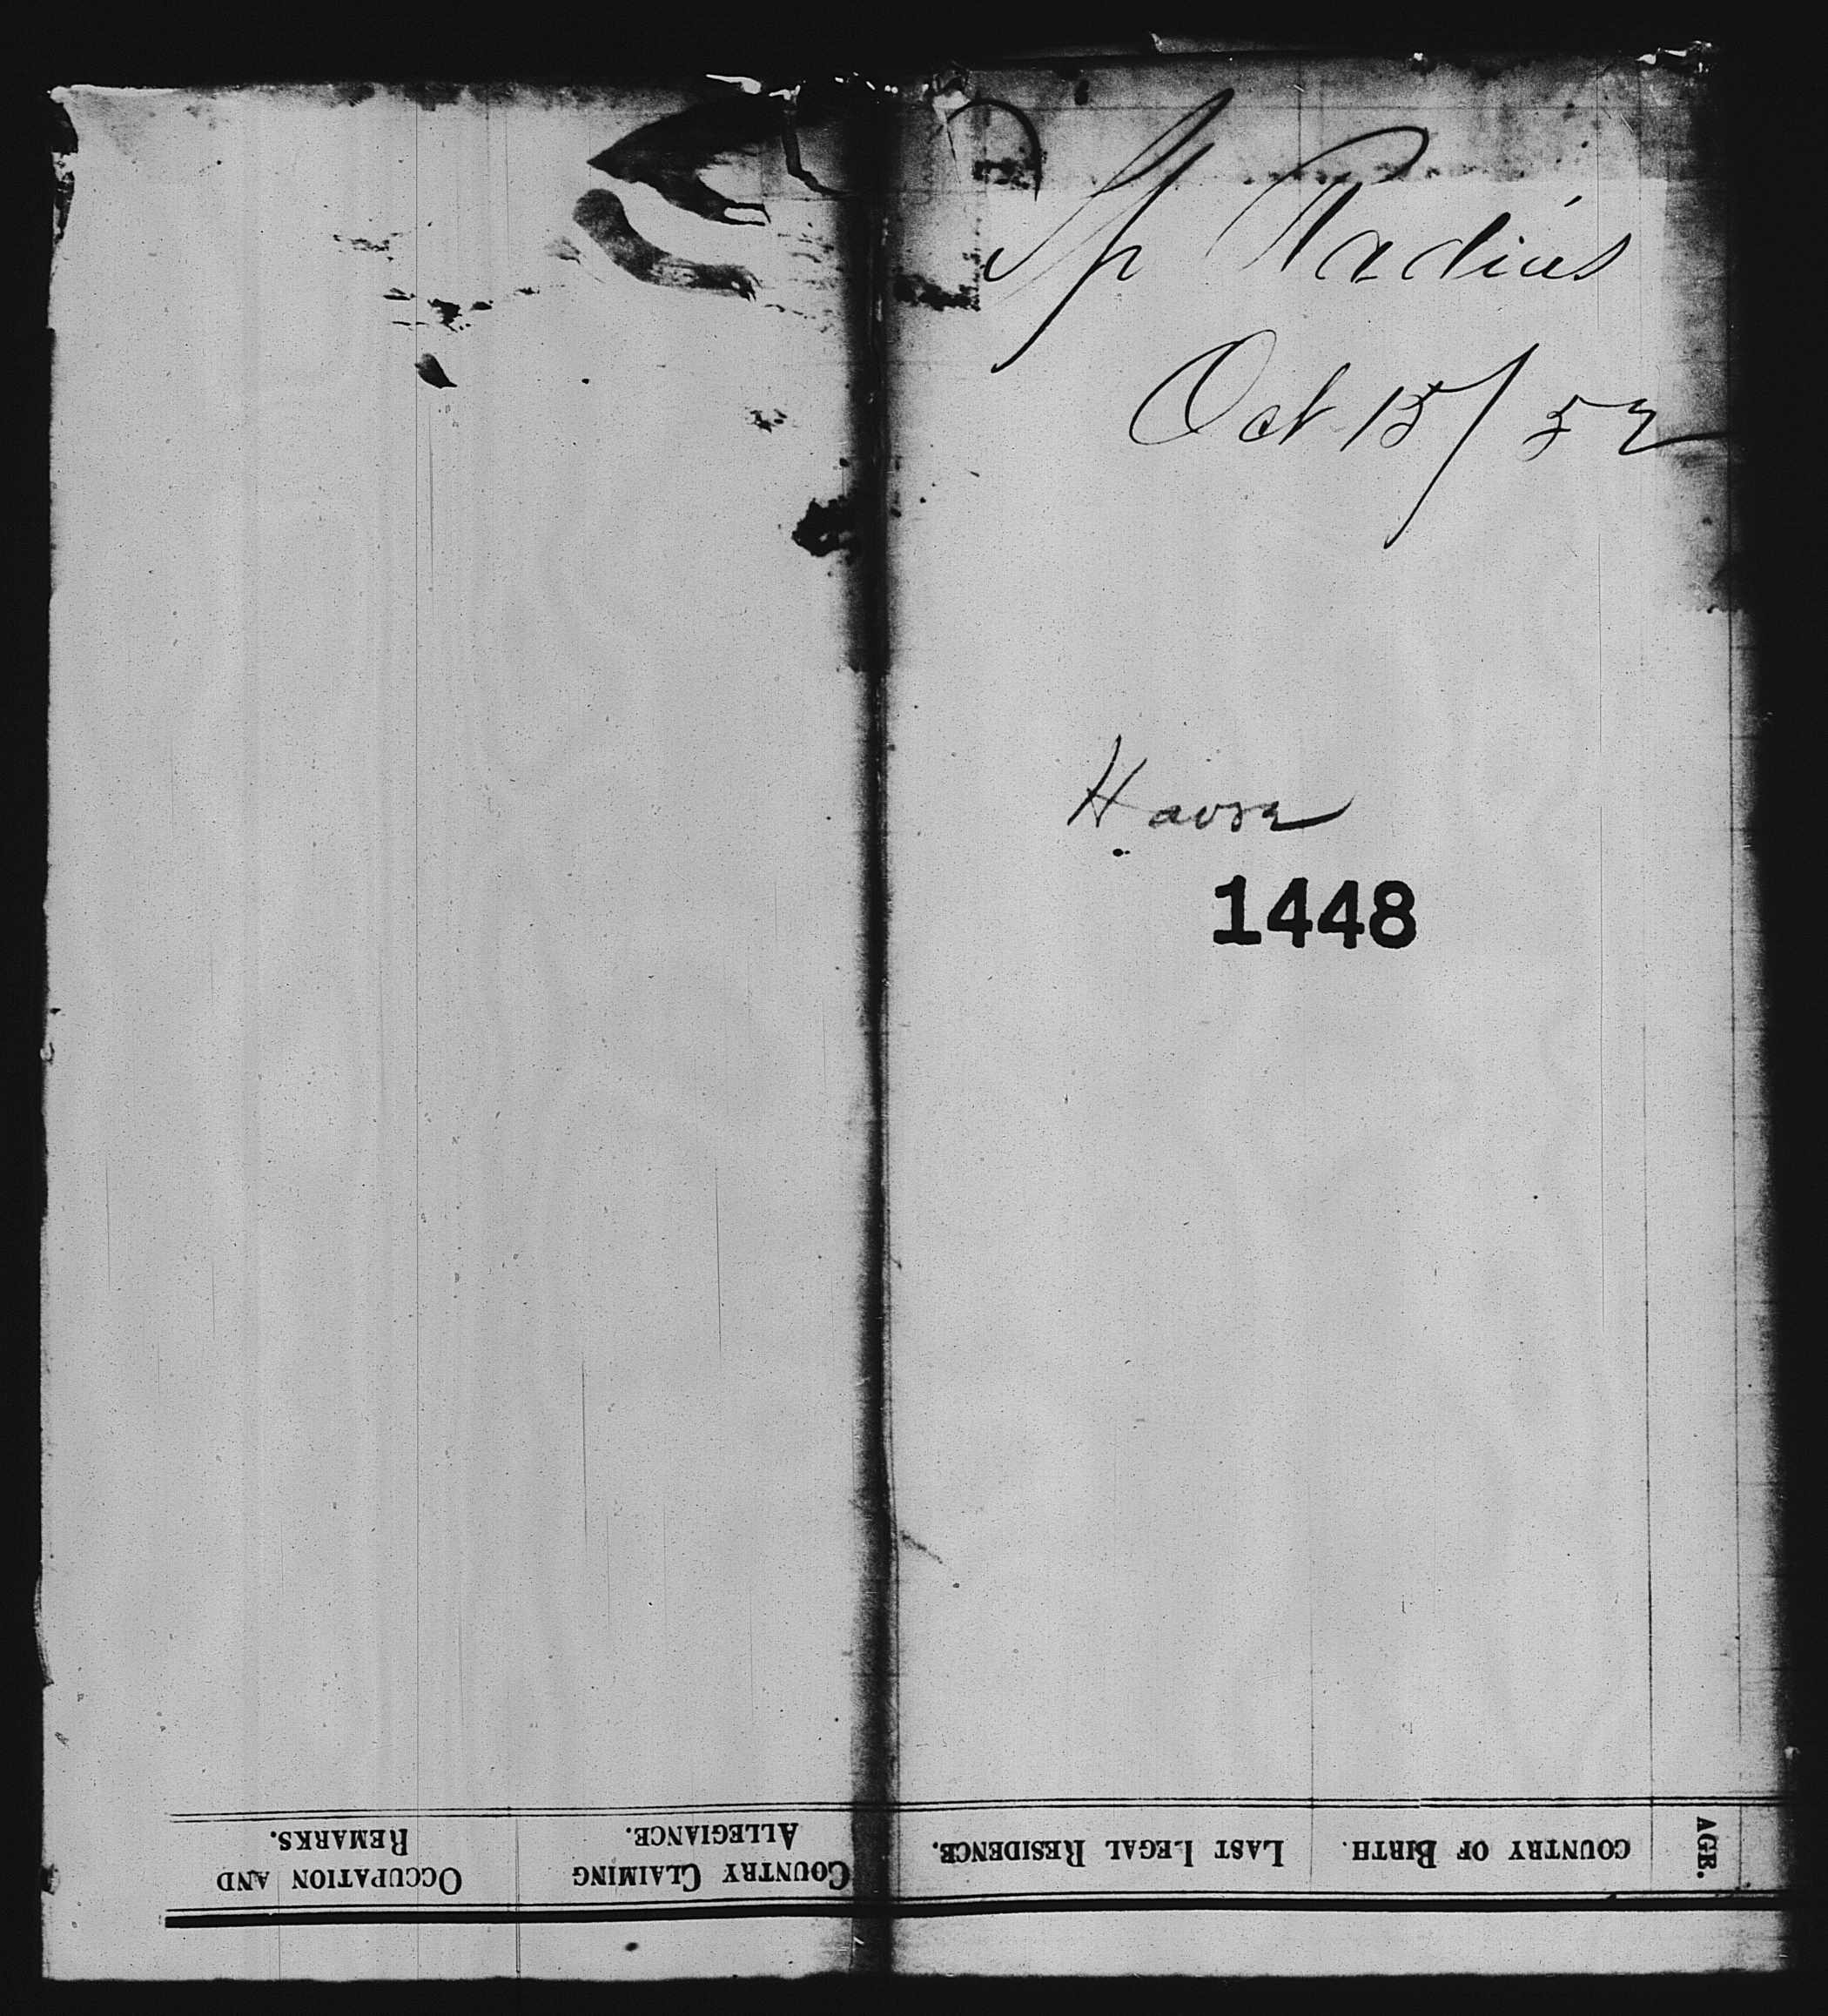 Sp Radius
Oct 15/52
Havre
1448
AGE.
COUNTRY OF BIRTH.
LAST LEGAL RESIDENCE.
COUNTRY CLAIMING
ALLEGIANCE.
OCCUPATION AND
REMARKS.